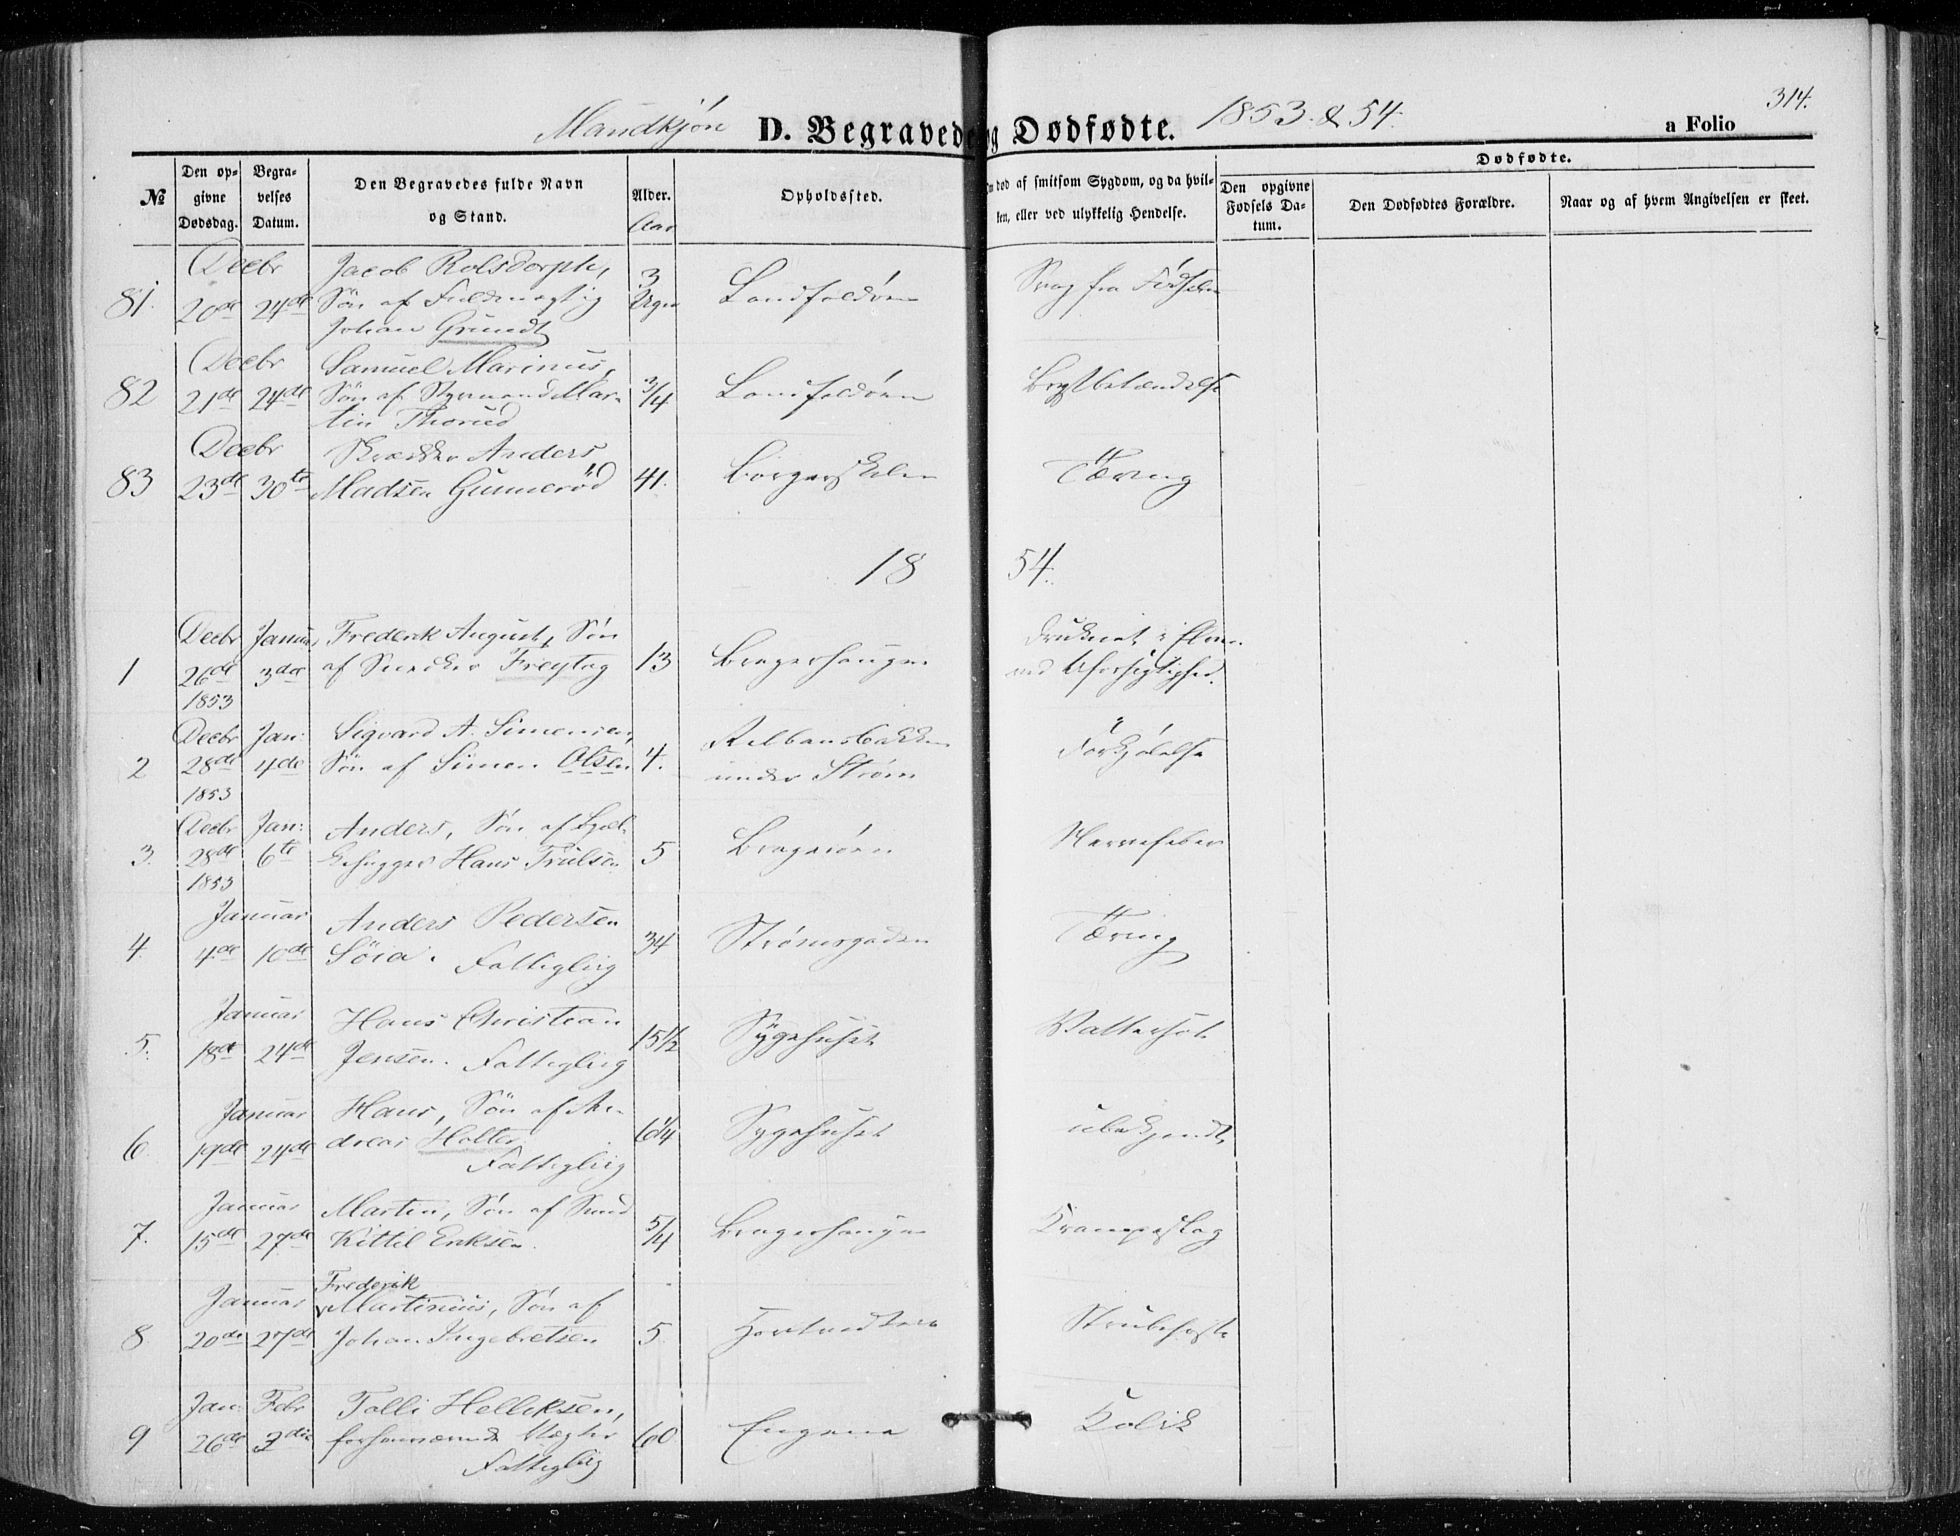 314.
Mandkjøn D. Begravede og Dødfødte. 1853 & 54. a Folio
№
Den opgivne Dødsdag.
Begravelses Datum.
Den Begravedes fulde Navn og Stand.
Alder. Aar
Opholdssted.
død af smitsom Sygdom, og da hvilken, eller ved ulykkelig Hendelse.
Dødfødte.
Den opgivne Fødsels Datum.
Den Dødfødtes Forældre.
Naar og af hvem Angivelsen er skeet.
Decbr Jacob Rolsdorph, 3
81. 20de 24de Søn af Fuldmægtig Uger Landfaldøen Svag fra Fødselen
Johan Grundt
Decbr Samuel Marinus,
82 21de 24de Søn af Styrmand Mar- 3/4 Landfaldøen Brystbetændelse
tin Thorud
Decbr Skrædder Anders
83 23de 30te Madsen Gunnerød 41. Børgerskolen Tæring
18 54.
Decbr Januar Frederik August, Søn druknet i Elven
1 26de 3die af Snedker Freytag 13 Bragerhaugen ved Uforsigtighed.
1853
Decbr Jan: Sigvard A. Simensen,
2 28de 4de Søn af Simen Olsen 4. under Strøm Forkjølelse
1853
Decbr Jan: Anders, Søn af
3. 28de 6te Hans Trulsen 5 Bragerøen Nervefeber
1853
Januar Anders Pedersen
4. 4de 10de Fattiglig 34 Strømsgaden Tæring
Januar Hans Christian
5. 18de 24de Jensen. Fattiglig 15 1/2 Sygehuset Vattersot
Januar Hans, Søn af An-
6. 19de 24de dreas Holter 6 1/4 Sygehuset ubekjendt
Fattiglig
Januar Martin, Søn af Smed
7. 15de 27de Kittil Eriksen. 5/4 Bragerhaugen Krampeslag
Frederik
Januar Martinius, Søn af
8 20de 27de Johan Ingebretsen 5. Strubehoste
Jan: Febr Tolli Helliksen,
9 26de 3die forhenværende Vægter 60 Engene Kolik
Fattiglig